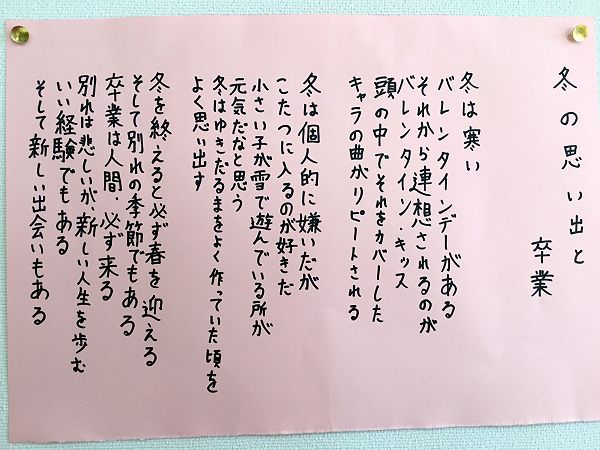 冬の思い出と
卒業
冬は寒い
バレンタインデーがある
それから連想されるのが
バレンタイン・キッス
頭の中でそれをカバーした
キャラの曲がリピートされる
冬は個人的に嫌いだが
こたつに入るのが好きだ
小さい子が雪で遊んでいる所が
元気だなと思う
冬はゆきだるまをよく作っていた頃を
よく思い出す
冬を終えると必ず春を迎える
そして別れの季節でもある
卒業は人間、必ず来る
別れは悲しいが、新しい人生を歩む
いい経験でもある
そして新しい出会いもある